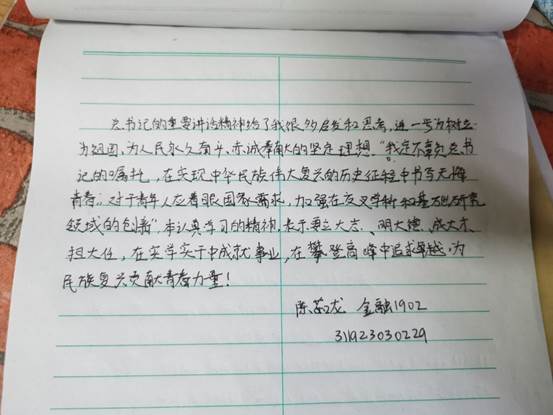 总书记的重要讲话精神给了我很多启发和思考,进一步为树立
为祖国、为人民永久奋斗、赤诚奉献的坚定理想。"我定不辜负总书
记的嘱托,在实现中华民族伟大复兴的历史征程中书写无悔
青春。对于青年人应着眼国家需求,加强在交叉学科和基础研究
领域的创新"本认真学习的精神,表示要立大志、明大德、成大才、
担大任,在实学实干中成就事业,在攀登高峰中追求卓越,为
民族复兴贡献青春力量!
陈茹龙 金融1902
311923030229